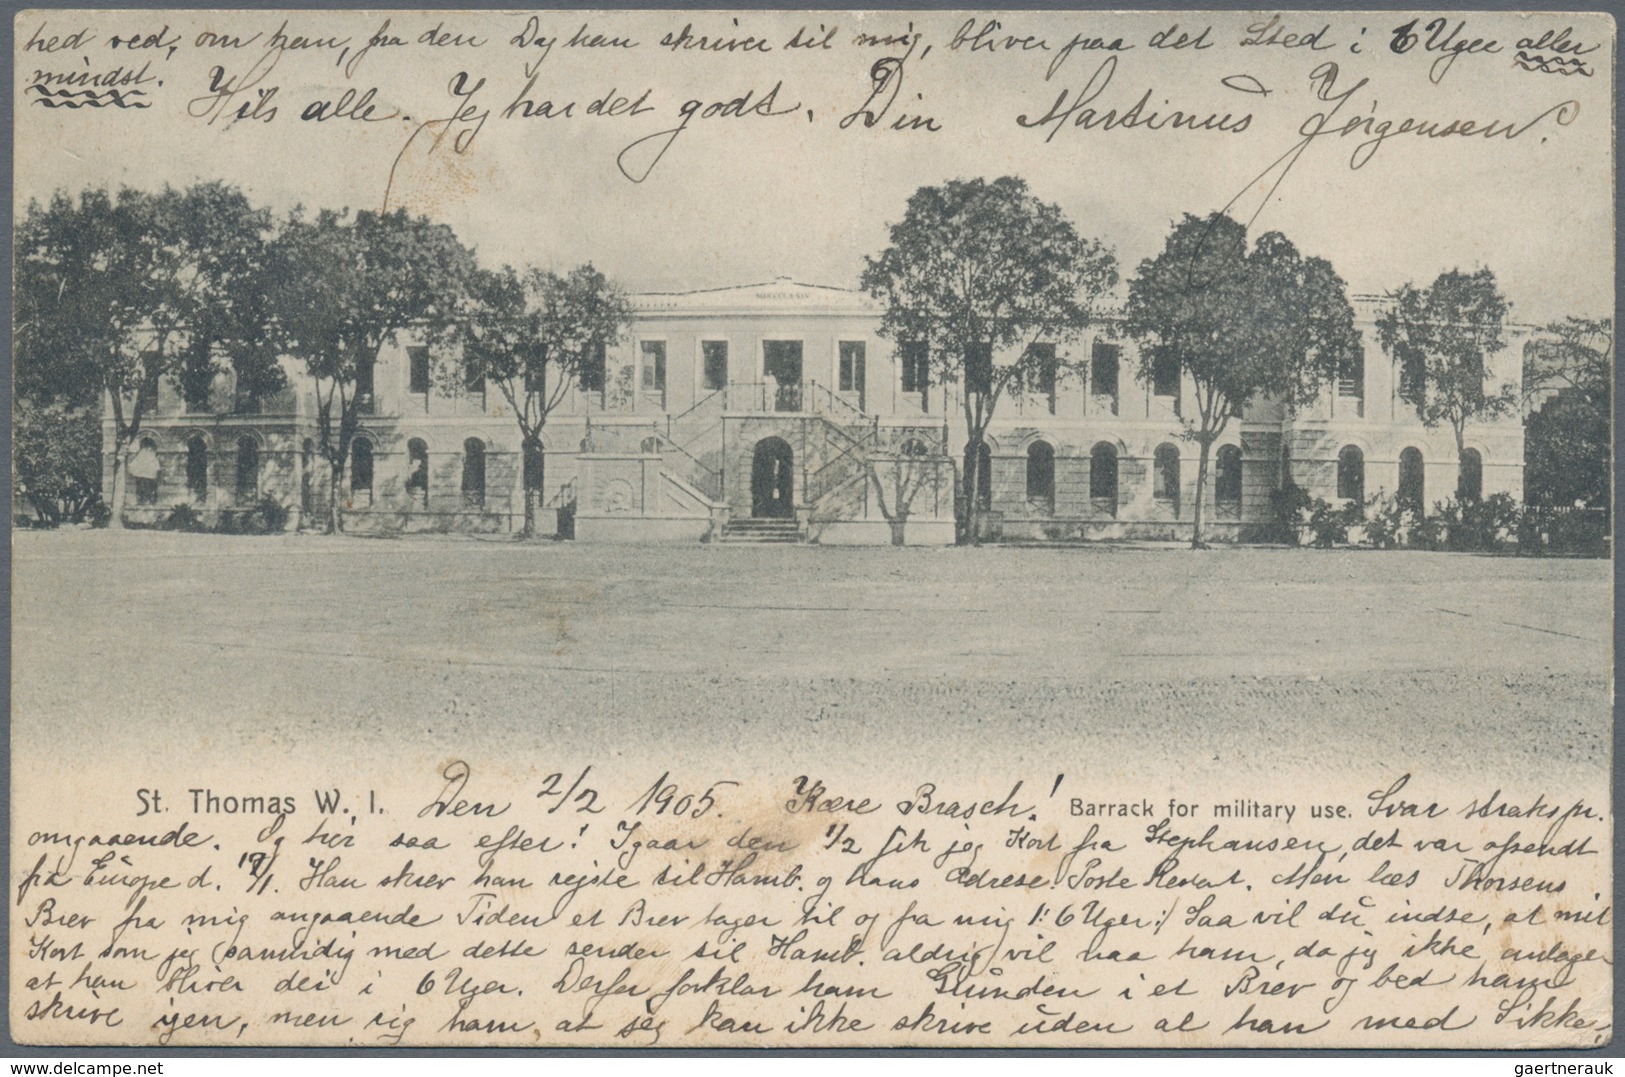 hed ved, om han, fra den Dag han skriver til mig, bliver paa det Sted i 6 Uger aller
mindst. Hils alle. Jeg har det godt. Din Martinus Jørgensen.
MDCCCLXXIV
St. Thomas W. I. Den 2/2 1905. Kære Brasch! Barrack for military use. Svar straks pr.
omgaaende. Og hør saa efter! Igaar den 1/2 fik jeg Kort fra Stephansen, det var afsendt
fra Europe d. 17/1. Han skrev han rejste til Hamb. og hans Adresse: Poste Restat. Men læs Thorsens
Brev fra mig angaaende Tiden et Brev tager til og fra mig 1: 6 Uger:/ Saa vil du indse, at mit
Kort som jeg (samtidig med dette sender til Hamb. aldrig) vil naa ham, da jeg ikke antager
at han bliver der i 6 Uger. Derfor forklar ham Grunden i et Brev og bed ham
skrive igen, men sig ham, at jeg kan ikke skrive uden at han med Sikker
delcampe.net
gaertnerauk